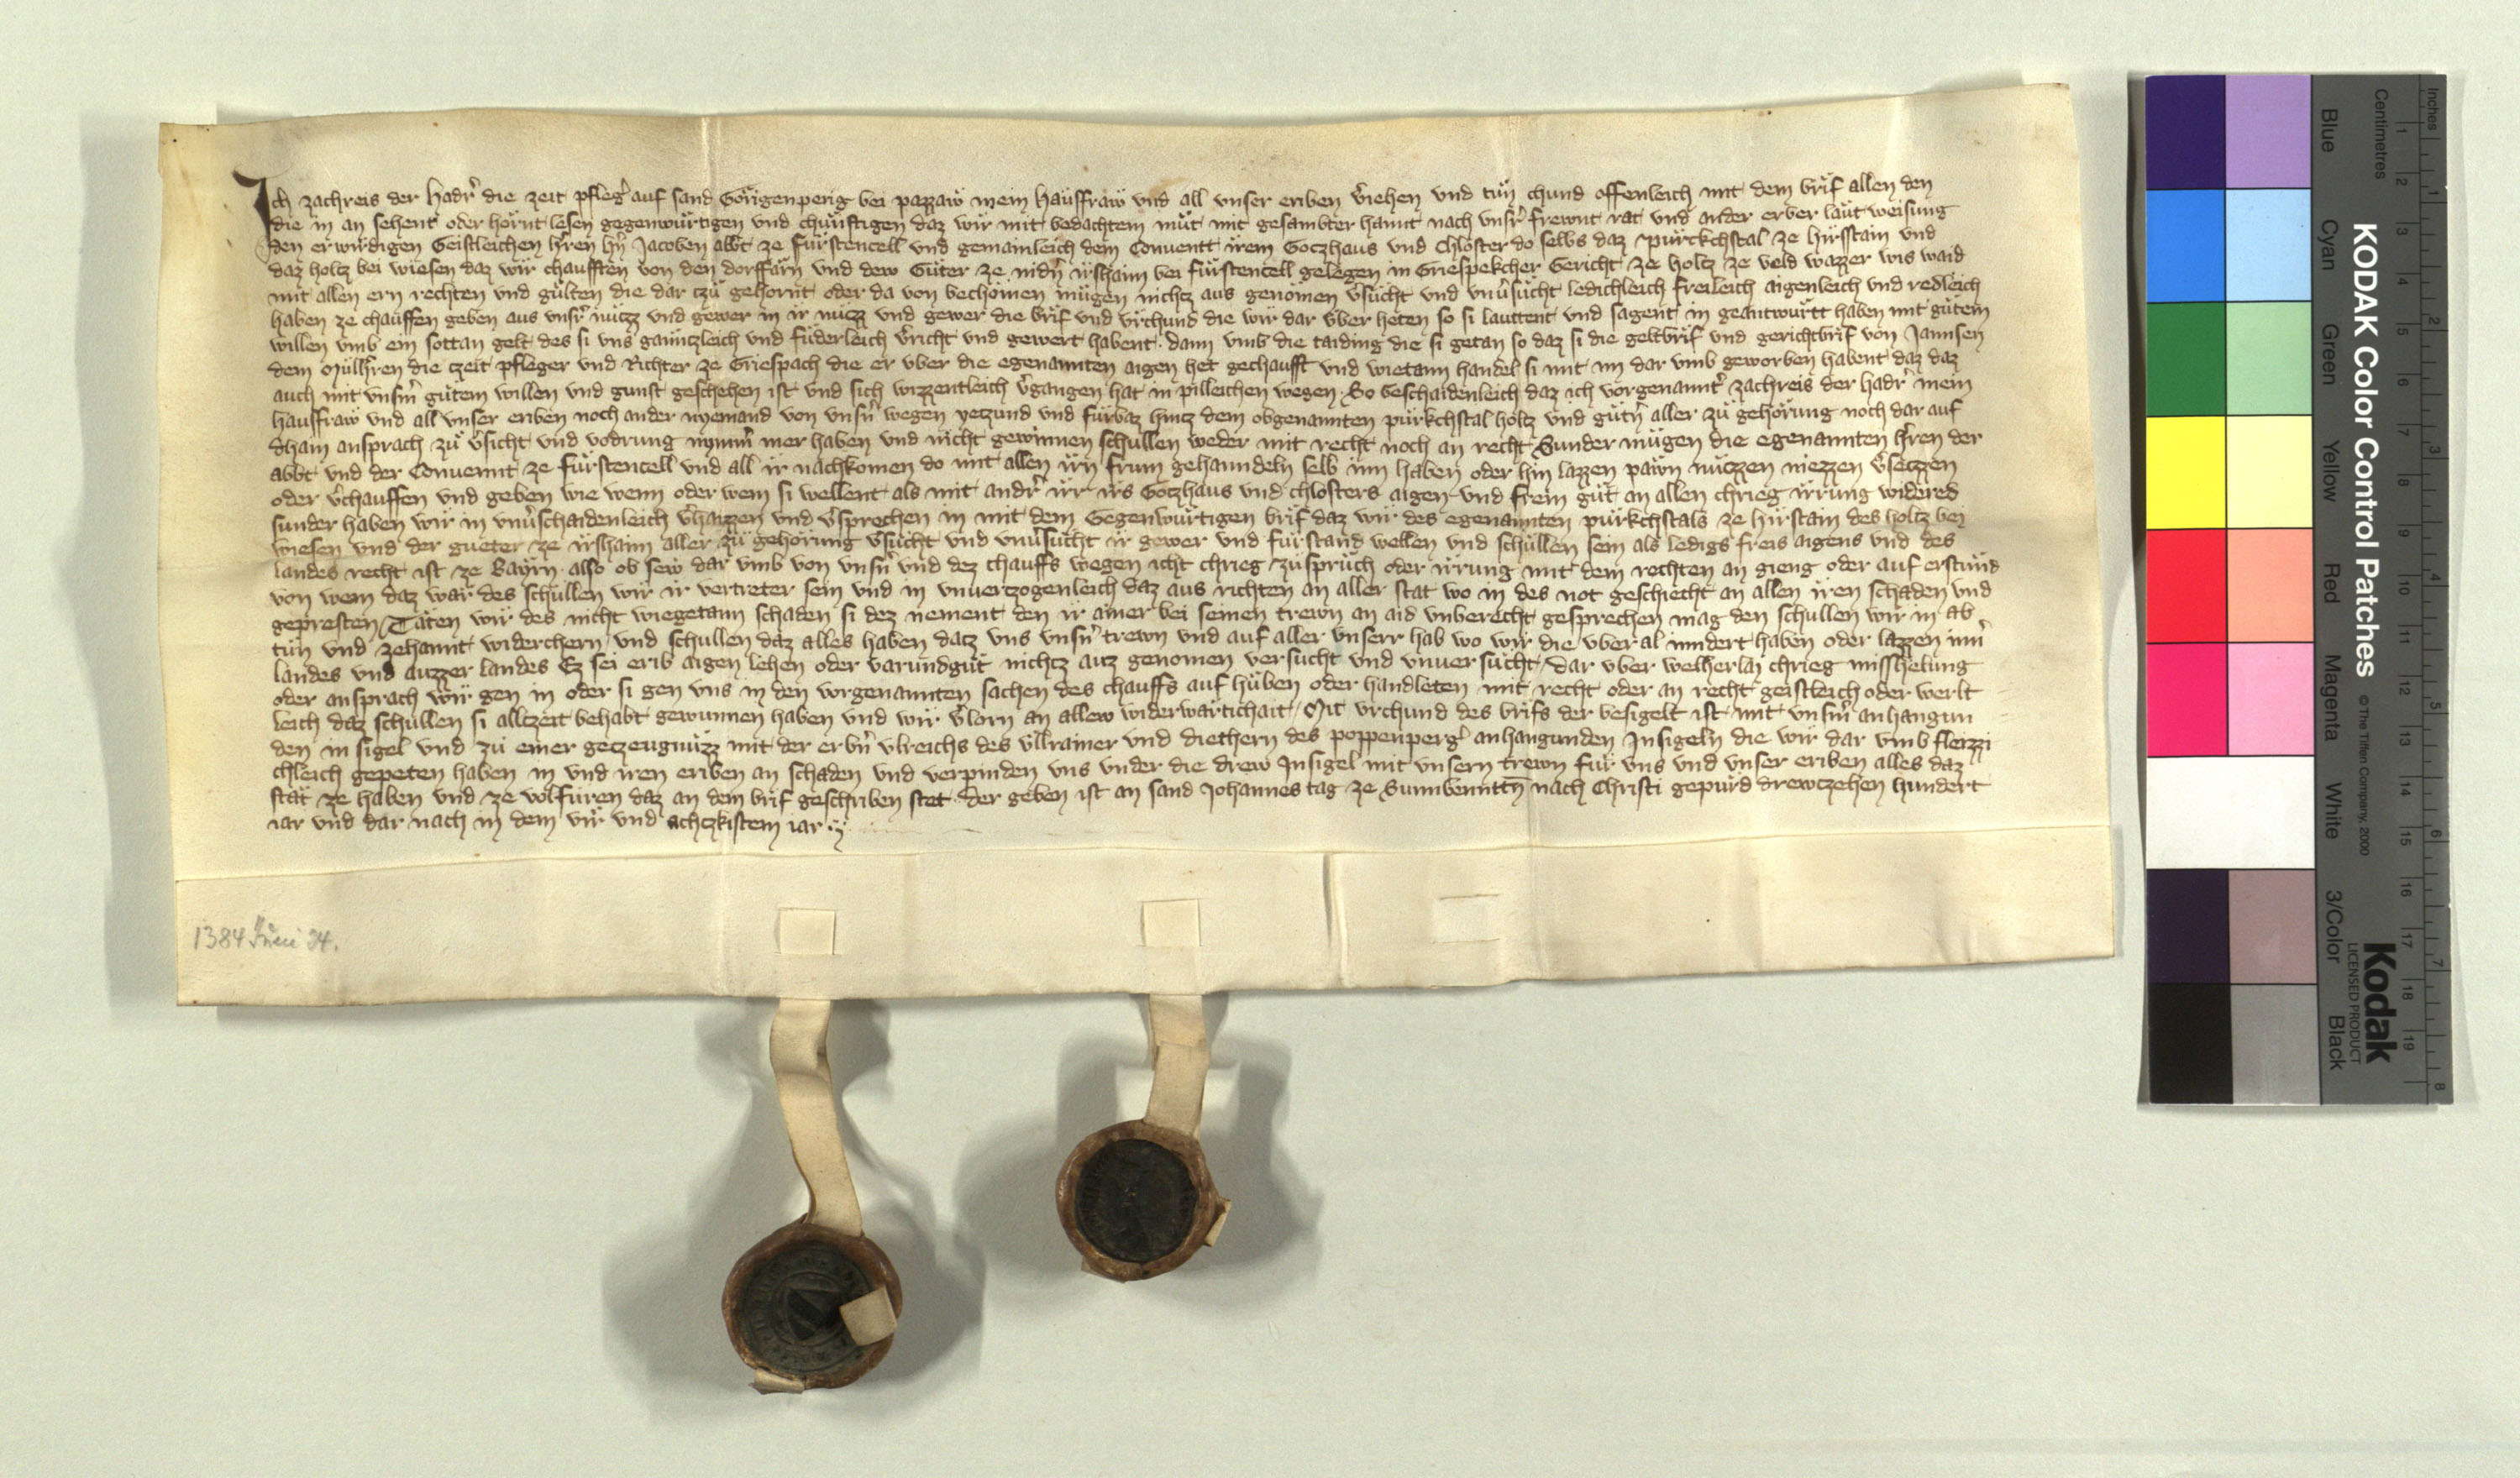 Ich zachreis der hadr̓ die zeit pfleg̓ auf sand Görigenperig bei pazzaw mein hauffraw vnd all vnser eriben v̓iehen vnd tün chund offenleich mit dem brif allen den
die in an sehent oder hörnt lesen gegenwürtigen vnd chünftigen daz wir mit bedachtem müt mit gesambter hannt nach vnsr̓ frewnt rat vnd ander erber läut weisung
den erwirdigen Geistleichen hr̓en hr̓n Jacoben abbt ze fürstencell vnd gemainleich dem Conuentt irem Goczhaus vnd Chloster do selbs daz purckchstal ze hirsstain vnd
daz holtz bei wiesen daz wir chaufften von den dorffärn vnd dew Güter ze nidn̓ irshaim bei fürstencell gelegen in Griespekcher Gericht ze holtz ze veld wazzer wis waid
mit allen ern rechten vnd gülten die dar czü gehornt oder da von bechömen mügen nichtz aus genömen v̓sücht vnd vnv̓sücht ledichleich freileich aigenleich vnd redleich
haben ze chauffen geben aus vnsr̓ nutz vnd gewer in ir nutz vnd gewer die brif vnd vrchund die wir dar vber heten so si lauttent vnd sagent in geantwurtt haben mit gütem
willen vmb ein sottan gelt des si vns gäntzleich vnd füderleich v̓richt vnd gewert habent. dann vmb die taiding die si getan so daz si die geltbrif vnd gerichtbrif von Jannsen
dem Müllr̓en die czeit pfleger vnd Richter ze Griespach die er vber die egenannten aigen het gechaufft vnd wietann handel si mit im dar vmb geworben habent daz daz
auch mit vnsm̓ gütem willen vnd gunst geschehen ist vnd sich wizzentleich v̓gangen hat in pilleichen wegen. So beschaidenleich daz ich vorgenannt̓ zachreis der hadr̓ mein
hauffraw vnd all vnser eriben noch ander nyemand von vnsn̓ wegen yetzund vnd fürbaz hintz dem obgenannten purkchstal holtz vnd gütn̓ aller zü gehörung noch dar auf
dhain ansprach zü v̓sicht vnd vodrung nymm̓ mer haben vnd nicht gewinnen schullen weder mit recht noch an recht Sunder mügen die egenannten hr̓ren der
abbt vnd der Conuennt ze fürstencell vnd all ir nachkomen do mit allen irn frum gehanndeln selb inn haben oder hin lazzen pawn nützzen niezzen v̓setzzen
oder v̓chauffen vnd geben wie wenn oder wem si wellent als mit andr̓ ir irs Gotzhaus vnd chlosters aigen vnd frein güt an allen chrieg irrung widered
sunder haben wir in vnv̓schaidenleich v̓haizzen vnd v̓sprechen in mit dem Gegenwürtigen brif daz wir des egenannten purkchstals ze hirstain des holtz bei
wiesen vnd der gueter ze irshaim aller zü gehörung v̓sücht vnd vnv̓sücht ir gewer vnd fürstand wellen vnd schüllen sein als ledigs freis aigens vnd des
landes recht ist ze Bayrn also ob sew dar vmb von vnsn̓ vnd dez chauffs wegen icht chrieg züsprüch oder irrung mit dem rechten an gieng oder auf erstünd
von wem daz wär des schüllen wir ir vertreter sein vnd in vnuertzogenleich daz aus richten an aller stat wo in des not geschiecht an allen iren schaden vnd
gepresten / Täten wir des nicht wiegetann schaden si dez nement den ir ainer bei seinen trewn an aid vnberecht gesprechen mag den schullen wir in ab
tün vnd zehannt widerchern vnd schullen daz alles haben datz vns vnsn̓ trewn vnd auf aller vnserr hab wo wir die vber al inndert haben oder lazzen inn̓
landes vnd auzzer landes Ez sei erib aigen lehen oder varundgüt nichtz auz genomen versucht vnd vnuersücht / dar vber welherlaj chrieg misshelung
oder ansprach wir gen in oder si gen vns in den vorgenannten sachen des chauffs auf hüben oder handleten mit recht oder an recht geistleich oder werlt
leich daz schüllen si allczeit behabt gewunnen haben vnd wir v̓lorn an allew widerwärtichait / Mit vrchund des brifs der besigelt ist mit vnsm̓ anhangun
den in sigel vnd zü einer getzeugnüzz mit der erbn̓ vlreichs des vllrainer vnd diethern des poppenperg̓ anhangunden Insigeln die wir dar vmb fleizzi
chleich gepeten haben in vnd iren eriben an schaden vnd verpinden vns vnder die drew Insigel mit vnsern trewn für vns vnd vnser eriben alles daz
stät ze haben vnd ze volfüren daz an dem brif geschriben stet. der geben ist an sand Johannes tag ze Sunnbenntn̄ nach Christi gepürd drewczehen hundert
iar vnd dar nach in dem vir vnd achtzkistem iar
1384 Juni 24.
KODAK Color Control Patches © The Tiffen Company, 2000
Kodak
LICENSED PRODUCT
Blue Cyan Green Yellow Red Magenta White 3/Color Black
Centimetres 1 2 3 4 5 6 7 8 9 10 11 12 13 14 15 16 17 18 19
Inches 1 2 3 4 5 6 7 8